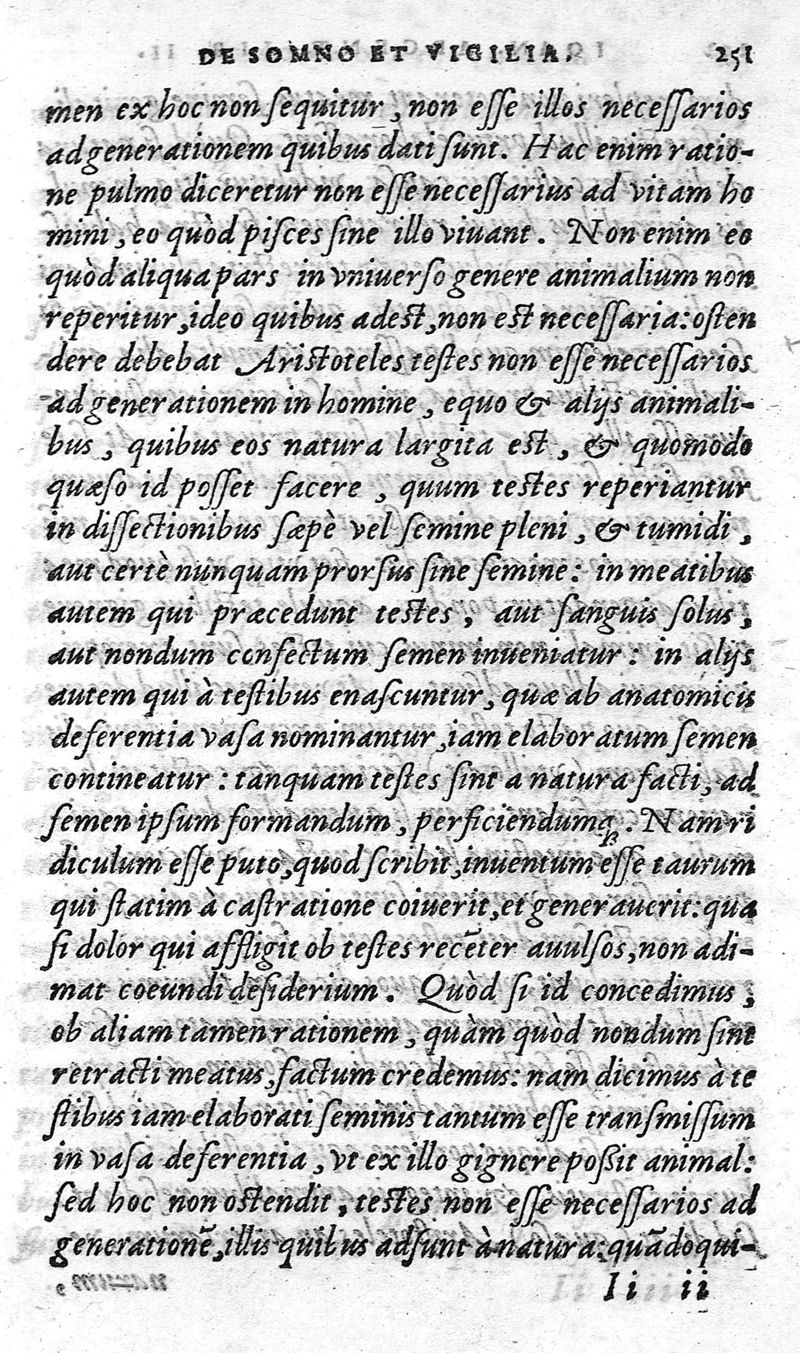 DE SOMNO ET VIGILIA. 251
men ex hoc non sequitur, non esse illos necessarios
ad generationem quibus dati sunt. Hac enim ratio-
ne pulmo diceretur non esse necessarius ad vitam ho
mini, eo quòd pisces sine illo viuant. Non enim eo
quòd aliqua pars in vniuerso genere animalium non
reperitur, ideo quibus adest, non est necessaria: osten
dere debebat Aristoteles testes non esse necessarios
ad generationem in homine, equo & alijs animali-
bus, quibus eos natura largita est, & quomodo
quæso id posset facere, quum testes reperiantur
in dissectionibus sæpè vel semine pleni, & tumidi,
aut certè nunquam prorsus sine semine: in meatibus
autem qui præcedunt testes, aut sanguis solus,
aut nondum confectum semen inueniatur: in alijs
autem qui à testibus enascuntur, quæ ab anatomicis
deferentia vasa nominantur, iam elaboratum semen
contineatur: tanquam testes sint a natura facti, ad
semen ipsum formandum, perficiendumq́;. Nam ri
diculum esse puto, quod scribit, inuentum esse taurum
qui statim à castratione coiuerit, et generauerit: qua
si dolor qui affligit ob testes recẽter auulsos, non adi-
mat coeundi desiderium. Quòd si id concedimus,
ob aliam tamen rationem, quàm quòd nondum sint
retracti meatus, factum credemus: nam dicimus à te
stibus iam elaborati seminis tantum esse transmissum
in vasa deferentia, vt ex illo gignere poßit animal:
sed hoc non ostendit, testes non esse necessarios ad
generationẽ, illis quibus adsunt à natura: quãdoqui-
Ii ii